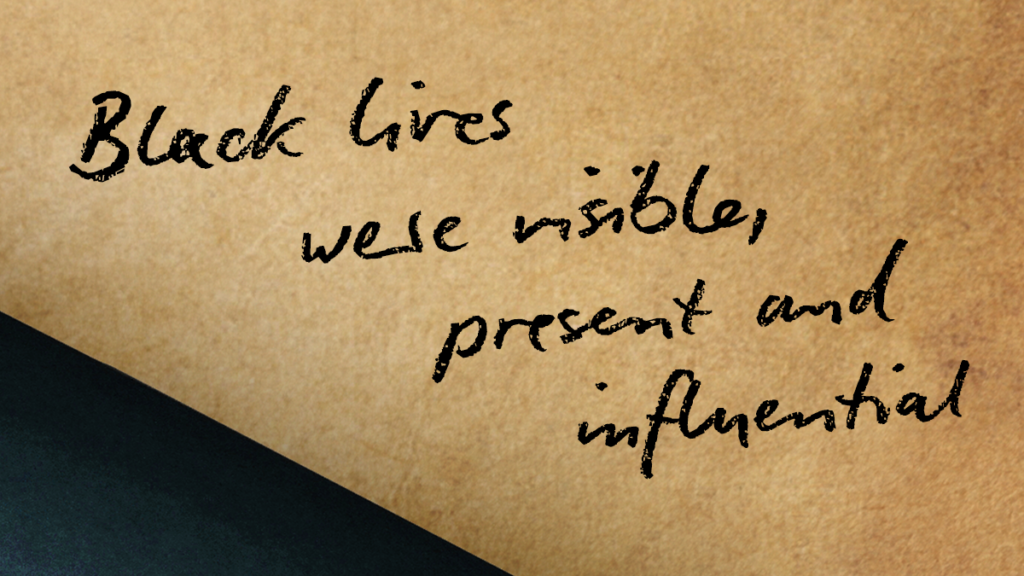 Black lives
were visible,
present and
influential